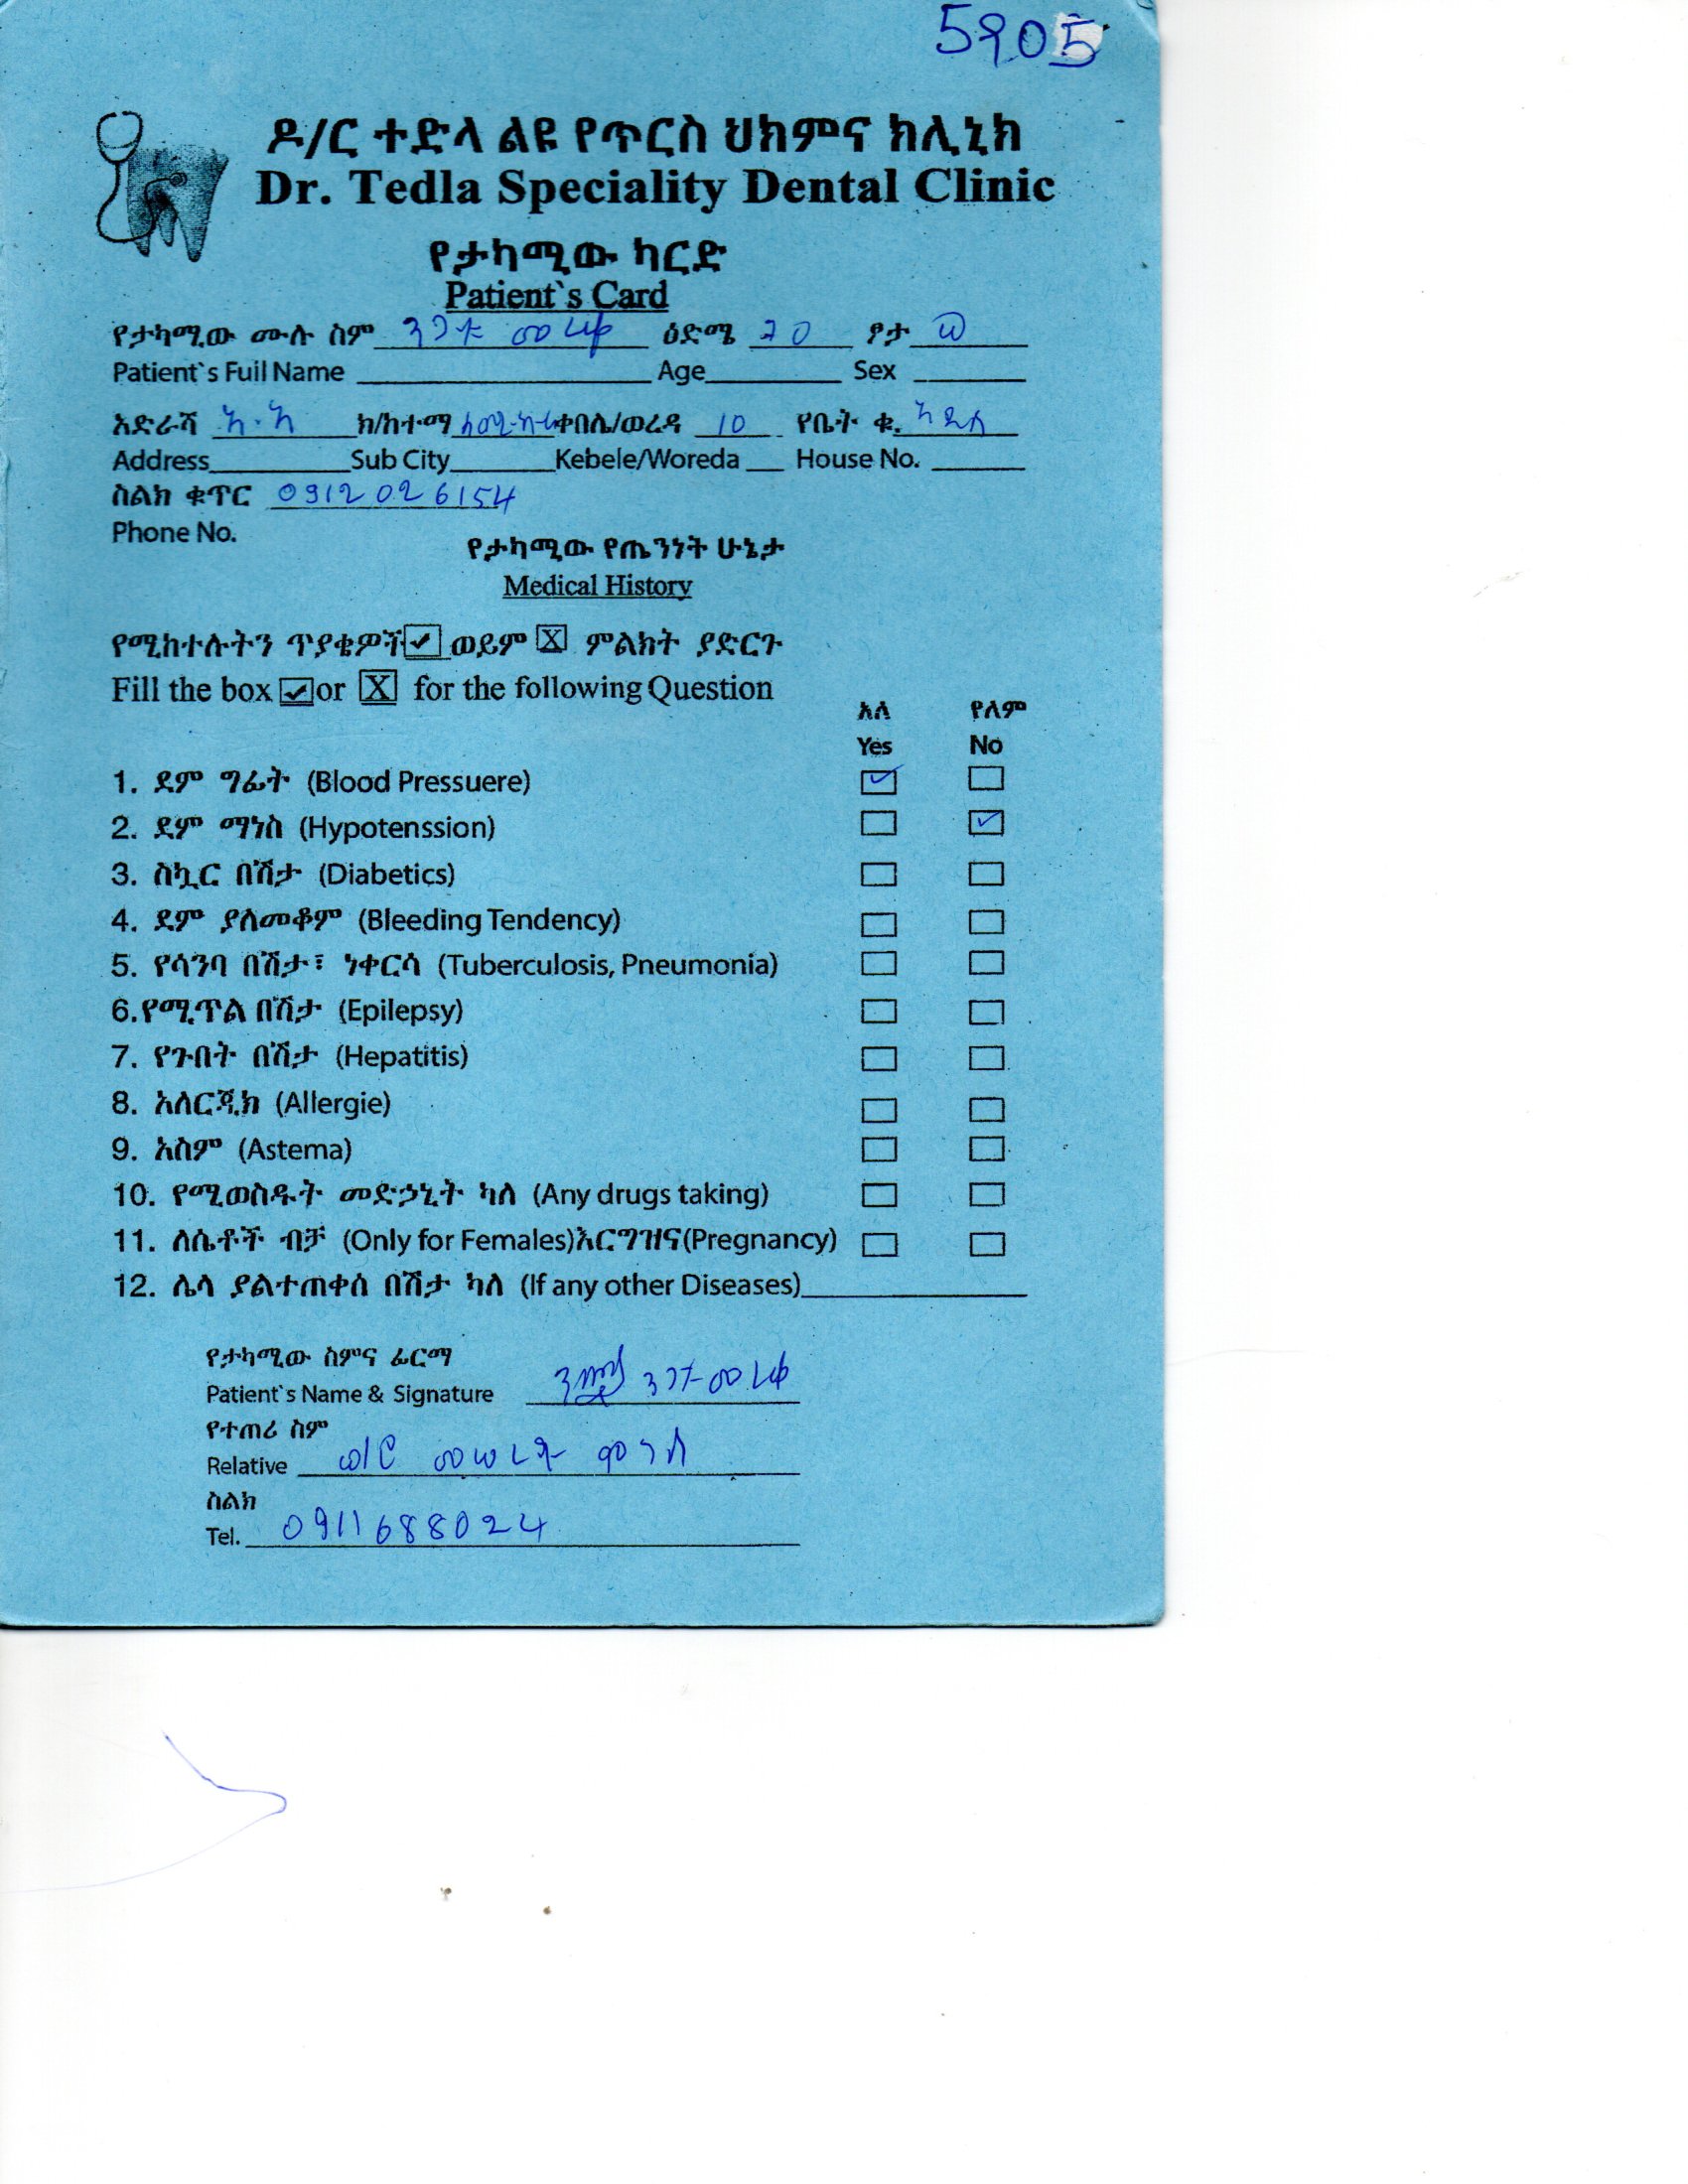 5905
ዶ/ር ተድላ ልዩ የጥርስ ህክምና ክሊኒክ
Dr. Tedla Speciality Dental Clinic
የታካሚው ካርድ
Patient`s Card
የታካሚው ሙሉ ስም ንጋቱ ዕድሜ 70 ፆታ ወ
Patient`s Full Name Age Sex
አድራሻ አ.አ ክ/ከተማ ቀበሌ/ወረዳ 10 የቤት ቁ. አዲስ
Address Sub City Kebele/Woreda House No.
ስልክ ቁጥር 0912026154
Phone No.
የታካሚው የጤንነት ሁኔታ
Medical History
የሚከተሉትን ጥያቄዎች ✓ ወይም X ምልክት ያድርጉ
Fill the box ✓ or X for the following Question
አለ የለም
Yes No
1. ደም ግፊት (Blood Pressuere) ✓
2. ደም ማነስ (Hypotenssion) ✓
3. ስኳር በሽታ (Diabetics)
4. ደም ያለመቆም (Bleeding Tendency)
5. የሳንባ በሽታ፣ ነቀርሳ (Tuberculosis, Pneumonia)
6.የሚጥል በሽታ (Epilepsy)
7. የጉበት በሽታ (Hepatitis)
8. አለርጂክ (Allergie)
9. አስም (Astema)
10. የሚወስዱት መድኃኒት ካለ (Any drugs taking)
11. ለሴቶች ብቻ (Only for Females)እርግዝና(Pregnancy)
12. ሌላ ያልተጠቀሰ በሽታ ካለ (If any other Diseases)
የታካሚው ስምና ፊርማ
Patient`s Name & Signature
የተጠሪ ስም
Relative ወ/ሮ
ስልክ
Tel. 0911688024